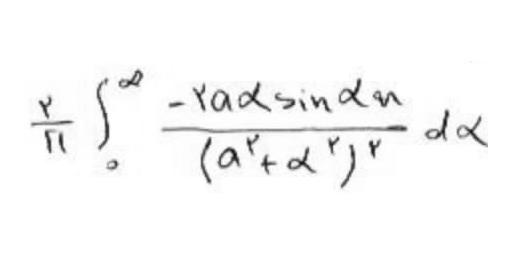 \frac{۲}{\pi} \int_{۰}^{\infty} \frac{-۲a\alpha \sin \alpha x}{(a^{۲}+\alpha^{۲})^{۲}} d\alpha